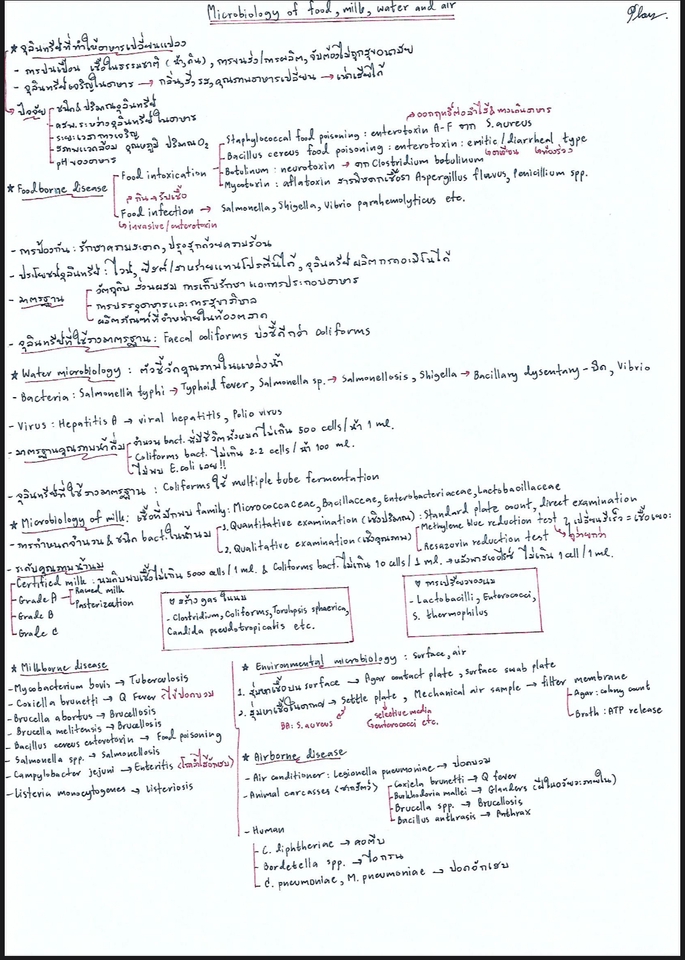 Microbiology of food, milk, water and air
Play.
* จุลินทรีย์ที่ทำให้อาหารเปลี่ยนแปลง
- การปนเปื้อน เชื้อในธรรมชาติ (น้ำ, ดิน), การขนส่ง/การผลิต, จับต้องไม่ถูกสุขอนามัย
- จุลินทรีย์เจริญในอาหาร → กลิ่น, สี, รส, คุณภาพอาหารเปลี่ยน → เน่าเสียได้
→ ปัจจัย
ชนิด & ปริมาณจุลินทรีย์
คสพ. ระหว่างจุลินทรีย์ในอาหาร
ระยะเวลาการเจริญ
สภาพแวดล้อม อุณหภูมิ ปริมาณ O2
pH ของอาหาร
* Foodborne disease
Food intoxication
→ ออกฤทธิ์ต่อลำไส้ & ทางเดินอาหาร
Staphylococcal food poisoning : enterotoxin A-F จาก S. aureus
Bacillus cereus food poisoning : enterotoxin : emitic / diarrheal type
↳ อาเจียน ↳ ท้องร่วง
Botulinum : neurotoxin → จาก Clostridium botulinum
Mycotoxin : aflatoxin สารพิษจากเชื้อรา Aspergillus flavus, Penicillium spp.
กิน → รับเชื้อ
Food infection → Salmonella, Shigella, Vibrio parahemolyticus etc.
↳ invasive/enterotoxin
- การป้องกัน : รักษาความสะอาด, ปรุงสุกด้วยความร้อน
- ประโยชน์จุลินทรีย์ : ไวน์, ยีสต์/สาหร่ายแทนโปรตีนได้, จุลินทรีย์ผลิตกรดอะมิโนได้
- มาตรฐาน
วัตถุดิบ ส่วนผสม การเก็บรักษา และการประกอบอาหาร
การบรรจุอาหารและการสุขาภิบาล
ผลิตภัณฑ์ที่จำหน่ายในท้องตลาด
- จุลินทรีย์ที่ใช้วางมาตรฐาน : Faecal coliforms บ่งชี้ดีกว่า coliforms
* Water microbiology : ตัวชี้วัดคุณภาพในแหล่งน้ำ
- Bacteria : Salmonella typhi → Typhoid fever, Salmonella sp. → Salmonellosis, Shigella → Bacillary dysentary - บิด, Vibrio
- Virus : Hepatitis A → viral hepatitis, Polio virus
- มาตรฐานคุณภาพน้ำดื่ม
จำนวน bact. ที่มีชีวิตทั้งหมด ไม่เกิน 500 cells/น้ำ 1 ml.
Coliforms bact. ไม่เกิน 2.2 cells/น้ำ 100 ml.
ไม่พบ E.coli เลย!!
- จุลินทรีย์ที่ใช้วางมาตรฐาน : Coliforms ใช้ multiple tube fermentation
* Microbiology of milk : เชื้อที่มักพบ family : Micrococaceae, Bacillaceae, Enterobacteriaceae, Lactobacillaceae
- การกำหนดจำนวน & ชนิด bact. ในน้ำนม
1. Quantitative examination (เชิงปริมาณ) : Standard plate count, direct examination
2. Qualitative examination (เชิงคุณภาพ)
Methylene blue reduction test
Resazorin reduction test
เปลี่ยนสีเร็ว = เชื้อเยอะ
- ระดับคุณภาพน้ำนม
Certified milk : นมดิบพบเชื้อไม่เกิน 5000 cells/1 ml. & Coliforms bact. ไม่เกิน 10 cells/1 ml. → หลังพาสเจอไรซ์ ไม่เกิน 1 cell/1 ml.
Grade A
Rawed milk
Pasterization
Grade B
Grade C
สร้าง gas ในนม
- Clostridium, Coliforms, Torulopsis sphaerica,
Candida pseudotropicatis etc.
การเปรี้ยวของนม
- Lactobacilli, Enterococci,
S. thermophilus
* Milkborne disease
- Mycobacterium bovis → Tuberculosis
- Coxiella brunetti → Q Fever ไข้ปอดบวม
- Brucella abortus → Brucellosis
- Brucella melitensis → Brucellosis
- Bacillus cereus enterotoxin → Food poisoning
- Salmonella spp. → Salmonellosis
- Campylobacter jejuni → Enteritis (โรคลำไส้อักเสบ)
- Listeria monocytogenes → Listeriosis
* Environmental microbiology : surface, air
1. สุ่มหาเชื้อบน surface → Agar contact plate, surface swab plate
2. สุ่มหาเชื้อในอากาศ → Settle plate, Mechanical air sample → filter membrane
BB : S. aureus
selective media
enterococci etc.
Agar : colony count
Broth : ATP release
* Airborne disease
- Air conditioner : Legionella pneumoniae → ปอดบวม
- Animal carcasses (ซากสัตว์)
Coxiela brunetti → Q fever
Burkhodoria mallei → Glanders (ฝีในอวัยวะภายใน)
Brucella spp. → Brucellosis
Bacillus anthrasis → Anthrax
- Human
C. diphtheriae → คอตีบ
Bordetella spp. → ไอกรน
C. pneumoniae, M. pneumoniae → ปอดอักเสบ